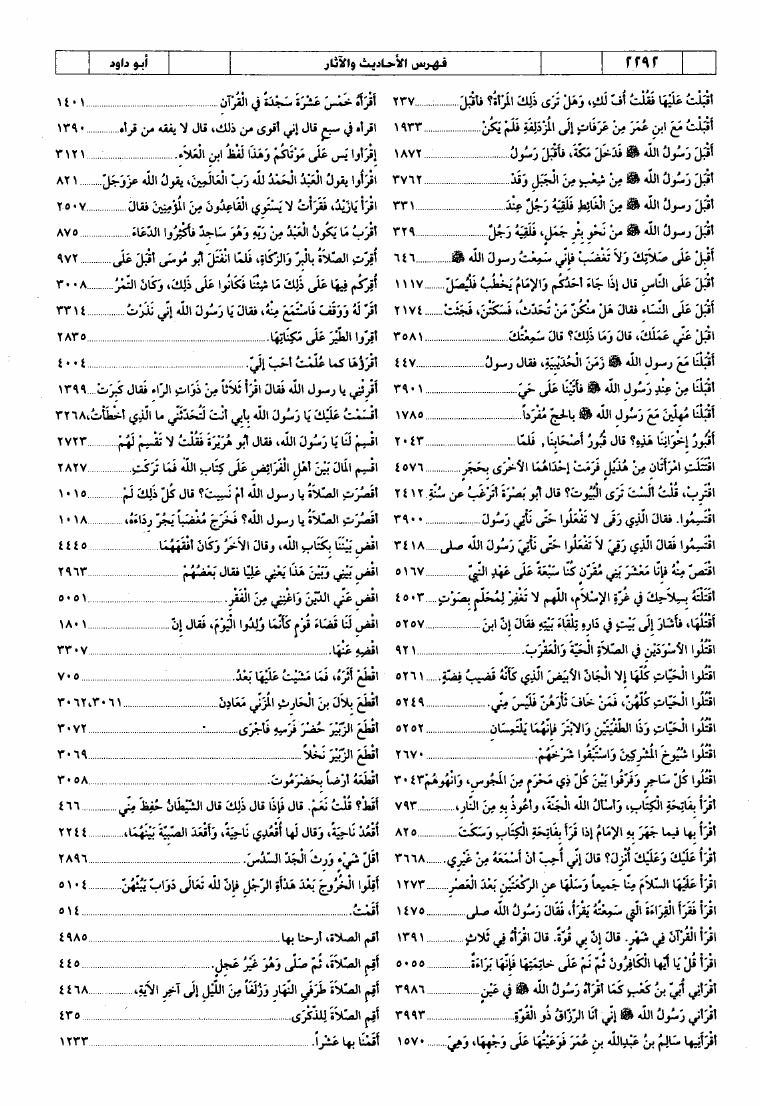 ٢٢٩٢ فهرس الأحاديث والآثار أبو داود
أَقْبَلْتُ عَلَيْهَا فَقُلْتُ أُفّ لَكِ، وَهَلْ تَرَى ذَلِكَ المَرْأَةُ؟ فأَقْبَلَ ........ ٢٣٧
أَقْبَلْتُ مَعَ ابنِ عُمَرَ مِنْ عَرَفَاتٍ إلَى المُزْدَلِفَةِ فَلَمْ يَكُنْ ........ ١٩٣٣
أَقْبَلَ رَسُولُ الله ﷺ فَدَخَلَ مَكّةَ، فأَقْبَلَ رَسُولُ ........ ١٨٧٢
أَقْبَلَ رَسُولُ الله ﷺ مِنْ شِعْبٍ مِنَ الْجَبَلِ وَقَدْ ........ ٣٧٦٢
أَقْبَلَ رسولُ الله ﷺ مِنَ الْغَائِطِ فَلَقِيَهُ رَجُلٌ عِنْدَ ........ ٣٣١
أَقْبَلَ رسولُ الله ﷺ منْ نَحوِ بِئْرِ جَمَلٍ، فَلَقِيَهُ رَجُلٌ ........ ٣٢٩
أَقْبِلْ عَلَى صَلاَتِكَ وَلاَ تَغْضَبْ فإنّي سَمِعْتُ رسولَ الله ﷺ ........ ٦٤٦
أَقْبَلَ عَلَى النّاسِ قال إذَا جَاءَ أحَدُكُم وَالإمَامُ يَخْطُبُ فَلْيُصَلّ ........ ١١١٧
أَقْبَلَ عَلَى النّسَاءِ فقالَ هَلْ مِنْكُنّ مَنْ تُحَدّثُ، فَسَكَتْنَ، فَجَثَتْ ........ ٢١٧٤
اقْبَلْ عَنّي عَمَلَكَ، قال وَمَا ذَلِكَ؟ قال سَمِعْتُكَ ........ ٣٥٨١
أَقْبَلْنَا مَعَ رسولِ الله ﷺ زَمَنَ الْحُدَيْبِيَةِ، فقال رسولُ ........ ٤٤٧
أَقْبَلْنَا مِنْ عِنْدِ رَسُولِ الله ﷺ فأَتَيْنَا عَلَى حَيّ ........ ٣٩٠١
أَقْبَلْنَا مُهِلّينَ مَعَ رَسُولِ الله ﷺ بالْحَجّ مُفْرَداً ........ ١٧٨٥
أَقُبُورُ إخْوَانِنَا هَذِهِ؟ قال قُبُورُ أصْحَابِنَا، فَلَمّا ........ ٢٠٤٣
اقْتَتَلَتِ امْرَأَتَانِ مِنْ هُذَيْلٍ فَرَمَتْ إحْدَاهُمَا الأُخْرَى بِحَجَرٍ ........ ٤٥٧٦
اقْتَرِبْ، قُلْتُ ألَسْتَ تَرَى الْبُيُوتَ؟ قال أبو بَصْرَةَ أتَرْغَبُ عن سُنّةِ ٢٤١٢
اقْتَسِمُوا. فقالَ الّذِي رَقَى لا تَفْعَلُوا حَتّى نَأْتِيَ رَسُولَ ........ ٣٩٠٠
اقْتَسِمُوا فقالَ الّذِي رَقِيَ لاَ تَفْعَلُوا حَتّى نَأْتِيَ رَسُولَ الله صلى ........ ٣٤١٨
اقْتَصّ مِنْهُ فإنّا مَعْشَرَ بَنِي مُقَرّنٍ كُنّا سَبْعَةً عَلَى عَهْدِ النّبيّ ........ ٥١٦٧
أَقَتَلْتَهُ بِسِلاَحِكَ في غُرّةِ الإسْلاَمِ، اللهم لا تَغْفِرْ لِمُحَلّمٍ بِصَوْتٍ ........ ٤٥٠٣
أَقْتُلُهَا، فأَشَارَ إلَى بَيْتٍ في دَارِهِ تِلْقَاءَ بَيْتِهِ فقَالَ إنّ ابنَ ........ ٥٢٥٧
اقْتُلُوا الأَسْوَدَيْنِ في الصّلاَةِ الْحَيّةَ وَالْعَقْرَبَ. ........ ٩٢١
اقْتُلُوا الْحَيّاتِ كُلّهَا إلا الْجَانّ الأَبْيَضَ الّذِي كَأَنّهُ قَضِيبُ فِضّةٍ. ........ ٥٢٦١
اقْتُلُوا الْحَيّاتِ كُلّهُنّ، فَمَنْ خَافَ ثَأْرَهُنّ فَلَيْسَ مِنّي. ........ ٥٢٤٩
اقْتُلُوا الْحَيّاتِ وَذَا الطّفْيَتَيْنِ وَالأَبْتَرَ فإنّهُمَا يَلْتَمِسَانِ ........ ٥٢٥٢
اقْتُلُوا شُيُوخَ المُشْرِكِينَ وَاسْتَبْقُوا شَرْخَهُمْ. ........ ٢٦٧٠
اقْتُلُوا كُلّ سَاحِرٍ وَفَرّقُوا بَيْنَ كُلّ ذِي مَحْرَمٍ مِنَ المَجُوسِ، وَانْهُوهُمْ ٣٠٤٣
أَقْرَأُ بِفَاتِحَةِ الْكِتَابِ، وَأَسأَلُ الله الْجَنّةَ، وأعُوذُ بِهِ مِنَ النّارِ، ........ ٧٩٣
اقْرَأْ بِها فيما جَهَرَ بِهِ الإمَامُ إذا قَرَأَ بِفَاتِحَةِ الْكِتَابِ وَسَكَتَ ........ ٨٢٥
أَقْرَأُ عَلَيْكَ وَعَلَيْكَ أُنْزِلَ؟ قال إنّي أُحِبّ أنْ أَسْمَعَهُ مِنْ غَيْرِي. ........ ٣٦٦٨
اقْرَأْ عَلَيْهَا السّلاَمَ مِنّا جَمِيعاً وَسَلْهَا عن الرّكْعَتَيْنِ بَعْدَ الْعَصْرِ ........ ١٢٧٣
اقْرَأْ فَقَرَأَ الْقِرَاءَةَ الّتي سَمِعْتُهُ يَقْرَأُ، فَقَالَ رَسُولُ الله صلى ........ ١٤٧٥
اقْرَأِ الْقُرْآنَ في شَهْرٍ. قال إنّ بِي قُوّةً. قال اقْرَأْهُ في ثَلاَثٍ ........ ١٣٩١
اقْرَأْ قُلْ يَا أيّهَا الْكَافِرُونَ ثُمّ نَمْ عَلَى خاتِمَتِهَا فإنّهَا بَرَاءَةٌ ........ ٥٠٥٥
أَقْرَأَنِي أُبَيّ بنُ كَعْبٍ كَمَا أقْرَأَهُ رَسُولُ الله ﷺ في عَيْنٍ ........ ٣٩٨٦
أَقْرَأَنِي رَسُولُ الله ﷺ إنّي أنَا الرّزّاقُ ذُو الْقُوّةِ ........ ٣٩٩٣
أَقْرَأَنِيهَا سَالِمُ بنُ عَبْدِالله بنِ عُمَرَ فَوَعَيْتُهَا عَلَى وَجْهِهَا، وَهِيَ ........ ١٥٧٠
أَقْرَأَهُ خَمْسَ عَشْرَةَ سَجْدَةً في الْقُرْآنِ ........ ١٤٠١
اقرأه في سبعٍ قال إني أقوى من ذلك، قال لا يفقه من قرأه ........ ١٣٩٠
إقْرَأوا يَس عَلَى مَوْتَاكُمْ وَهَذَا لَفْظُ ابنِ الْعَلاَءِ. ........ ٣١٢١
اقرَأُوا يقولُ الْعَبْدُ الْحَمْدُ لله رَبّ الْعَالَمِينَ، يقولُ الله عزوَجَلّ ........ ٨٢١
اقْرَأْ يَازَيْدُ، فَقَرَأْتُ لا يَسْتَوِي الْقَاعِدُونَ مِنَ المُؤْمِنِينَ فقالَ ........ ٢٥٠٧
أَقْرَبُ مَا يَكُونُ الْعَبْدُ مِنْ رَبّهِ وَهُوَ سَاجِدٌ فأَكْثِرُوا الدّعَاءَ ........ ٨٧٥
أُقِرّتِ الصّلاَةُ بالْبِرّ وَالزّكَاةِ، فَلَمّا انْفَتَلَ أبُو مُوسَى أقْبَلَ عَلَى ........ ٩٧٢
أُقِرّكُم فِيهَا عَلَى ذَلِكَ مَا شِئْنَا فَكَانُوا عَلَى ذَلِكَ، وَكَانَ التّمْرُ ........ ٣٠٠٨
أقَرّ لَهُ وَوَقَفَ فَاسْتَمَعَ مِنْهُ، فقال يَا رَسُولَ الله إنّي نَذَرْتُ ........ ٣٣١٤
أقِرّوا الطّيْرَ عَلَى مَكِنَاتِهَا. ........ ٢٨٣٥
أَقْرَؤُهَا كما عُلّمْتُ أحَبّ إلَيّ. ........ ٤٠٠٤
أَقْرِئْنِي يا رسولَ الله فقالَ اقْرَأْ ثَلاَثاً مِنْ ذَوَاتِ الرّاءِ فقالَ كَبِرَتْ ١٣٩٩
أَقْسَمْتُ عَلَيْكَ يَا رَسُولَ الله بِأبِي أنْتَ لَتُحَدّثَنّي ما الّذِي أخْطَأْتُ، ٣٢٦٨
اقْسِمْ لَنَا يَا رَسُولَ الله، فقال أبُو هُرَيْرَةَ فَقُلْتُ لا تَقْسِمْ لَهُمْ ........ ٢٧٢٣
اقْسِمِ المَالَ بَيْنَ أهْلِ الْفَرَائِضِ عَلَى كِتَابِ الله فَمَا تَرَكَتِ ........ ٢٨٢٧
أَقَصُرَتِ الصّلاَةُ يا رسول الله أمْ نَسِيتَ؟ قال كُلّ ذَلِكَ لَمْ ........ ١٠١٥
أَقَصُرَتِ الصّلاَةُ يا رسول الله؟ فَخَرَجَ مُغْضَباً يَجُرّ رِدَاءَهُ، ........ ١٠١٨
اقْضِ بَيْنَنَا بِكِتَابِ الله، وقال الآخَرُ وَكَانَ أفْقَهَهُمَا ........ ٤٤٤٥
اقْضِ بَيْنِي وَبَيْنَ هَذَا يَعْنِي عَلِيّا فقالَ بَعْضُهُمْ ........ ٢٩٦٣
اقْضِ عَنّي الدّيْنَ وَاغْنِنِي مِنَ الْفَقْرِ. ........ ٥٠٥١
اقْضِ لَنَا قَضَاءَ قَوْمٍ كَأَنّمَا وُلِدُوا الْيَوْمَ، فقال إنّ ........ ١٨٠١
اقْضِهِ عَنْهَا. ........ ٣٣٠٧
اقْطَعْ أثَرَهُ، فَمَا مَشَيْتُ عَلَيْهَا بَعْدُ. ........ ٧٠٥
أَقْطَعَ بِلاَلَ بنَ الْحَارِثِ المُزَنِيّ مَعَادِنَ ........ ٣٠٦١، ٣٠٦٢
أَقْطَعَ الزّبَيْرَ حُضْرَ فَرَسِهِ فأَجْرَى ........ ٣٠٧٢
أَقْطَعَ الزّبَيْرَ نَخْلاً ........ ٣٠٦٩
أَقْطَعَهُ أرْضاً بِحَضْرَمُوتَ. ........ ٣٠٥٨
أَقَطْ؟ قُلْتُ نَعَمْ. قال فإذَا قالَ ذَلِكَ قالَ الشّيْطَانُ حُفِظَ مِنّي ........ ٤٦٦
أَقْعُدْ نَاحِيَةً، وقال لها أقْعُدِي نَاحِيَةً، وَأَقْعَدَ الصّبِيّةَ بَيْنَهُمَا، ........ ٢٢٤٤
أَقَلّ شَيْءٍ وَرِثَ الْجَدّ السّدُسَ. ........ ٢٨٩٦
أَقِلّوا الْخُرُوجَ بَعْدَ هَدْأَةِ الرّجْلِ فإنّ لله تَعَالَى دَوَابّ يَبُثّهُنّ ........ ٥١٠٤
أَقَمْتُ. ........ ٥١٤
أقم الصلاة، أرحنا بها ........ ٤٩٨٥
أَقِمِ الصّلاَةَ، ثُمّ صَلّى وَهُوَ غَيْرُ عَجِلٍ. ........ ٤٤٥
أَقِمِ الصّلاَةَ طَرَفَيِ النّهَارِ وَزُلَفاً مِنَ اللّيْلِ إلَى آخِرِ الآيَةِ، ........ ٤٤٦٨
أَقِمِ الصّلاَةَ لِلذّكْرَى ........ ٤٣٥
أَقَمْنَا بها عَشْراً. ........ ١٢٣٣